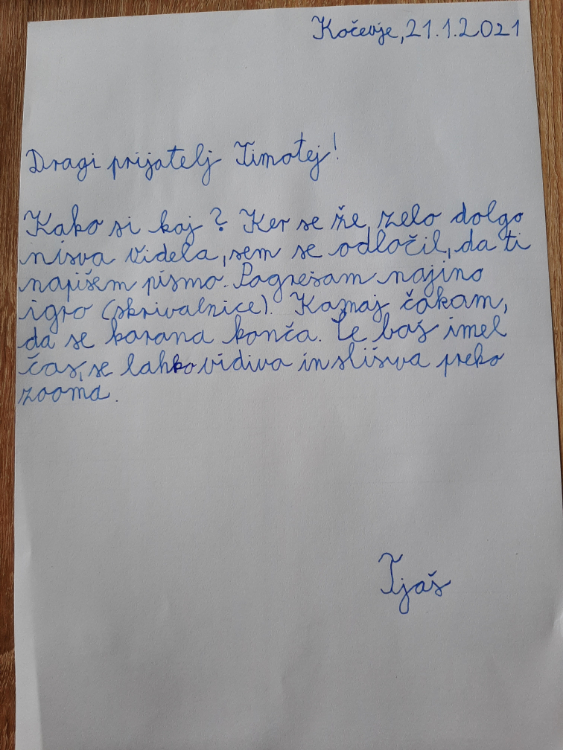 Kočevje, 21.1.2021
Dragi prijatelj Timotej!
Kako si kaj? Ker se že zelo dolgo
nisva videla, sem se odločil, da ti
napišem pismo. Pogrešam najino
igro (skrivalnice). Komaj čakam,
da se korana konča. Če boš imel
čas, se lahko vidiva in slišiva preko
zooma.
Tjaš